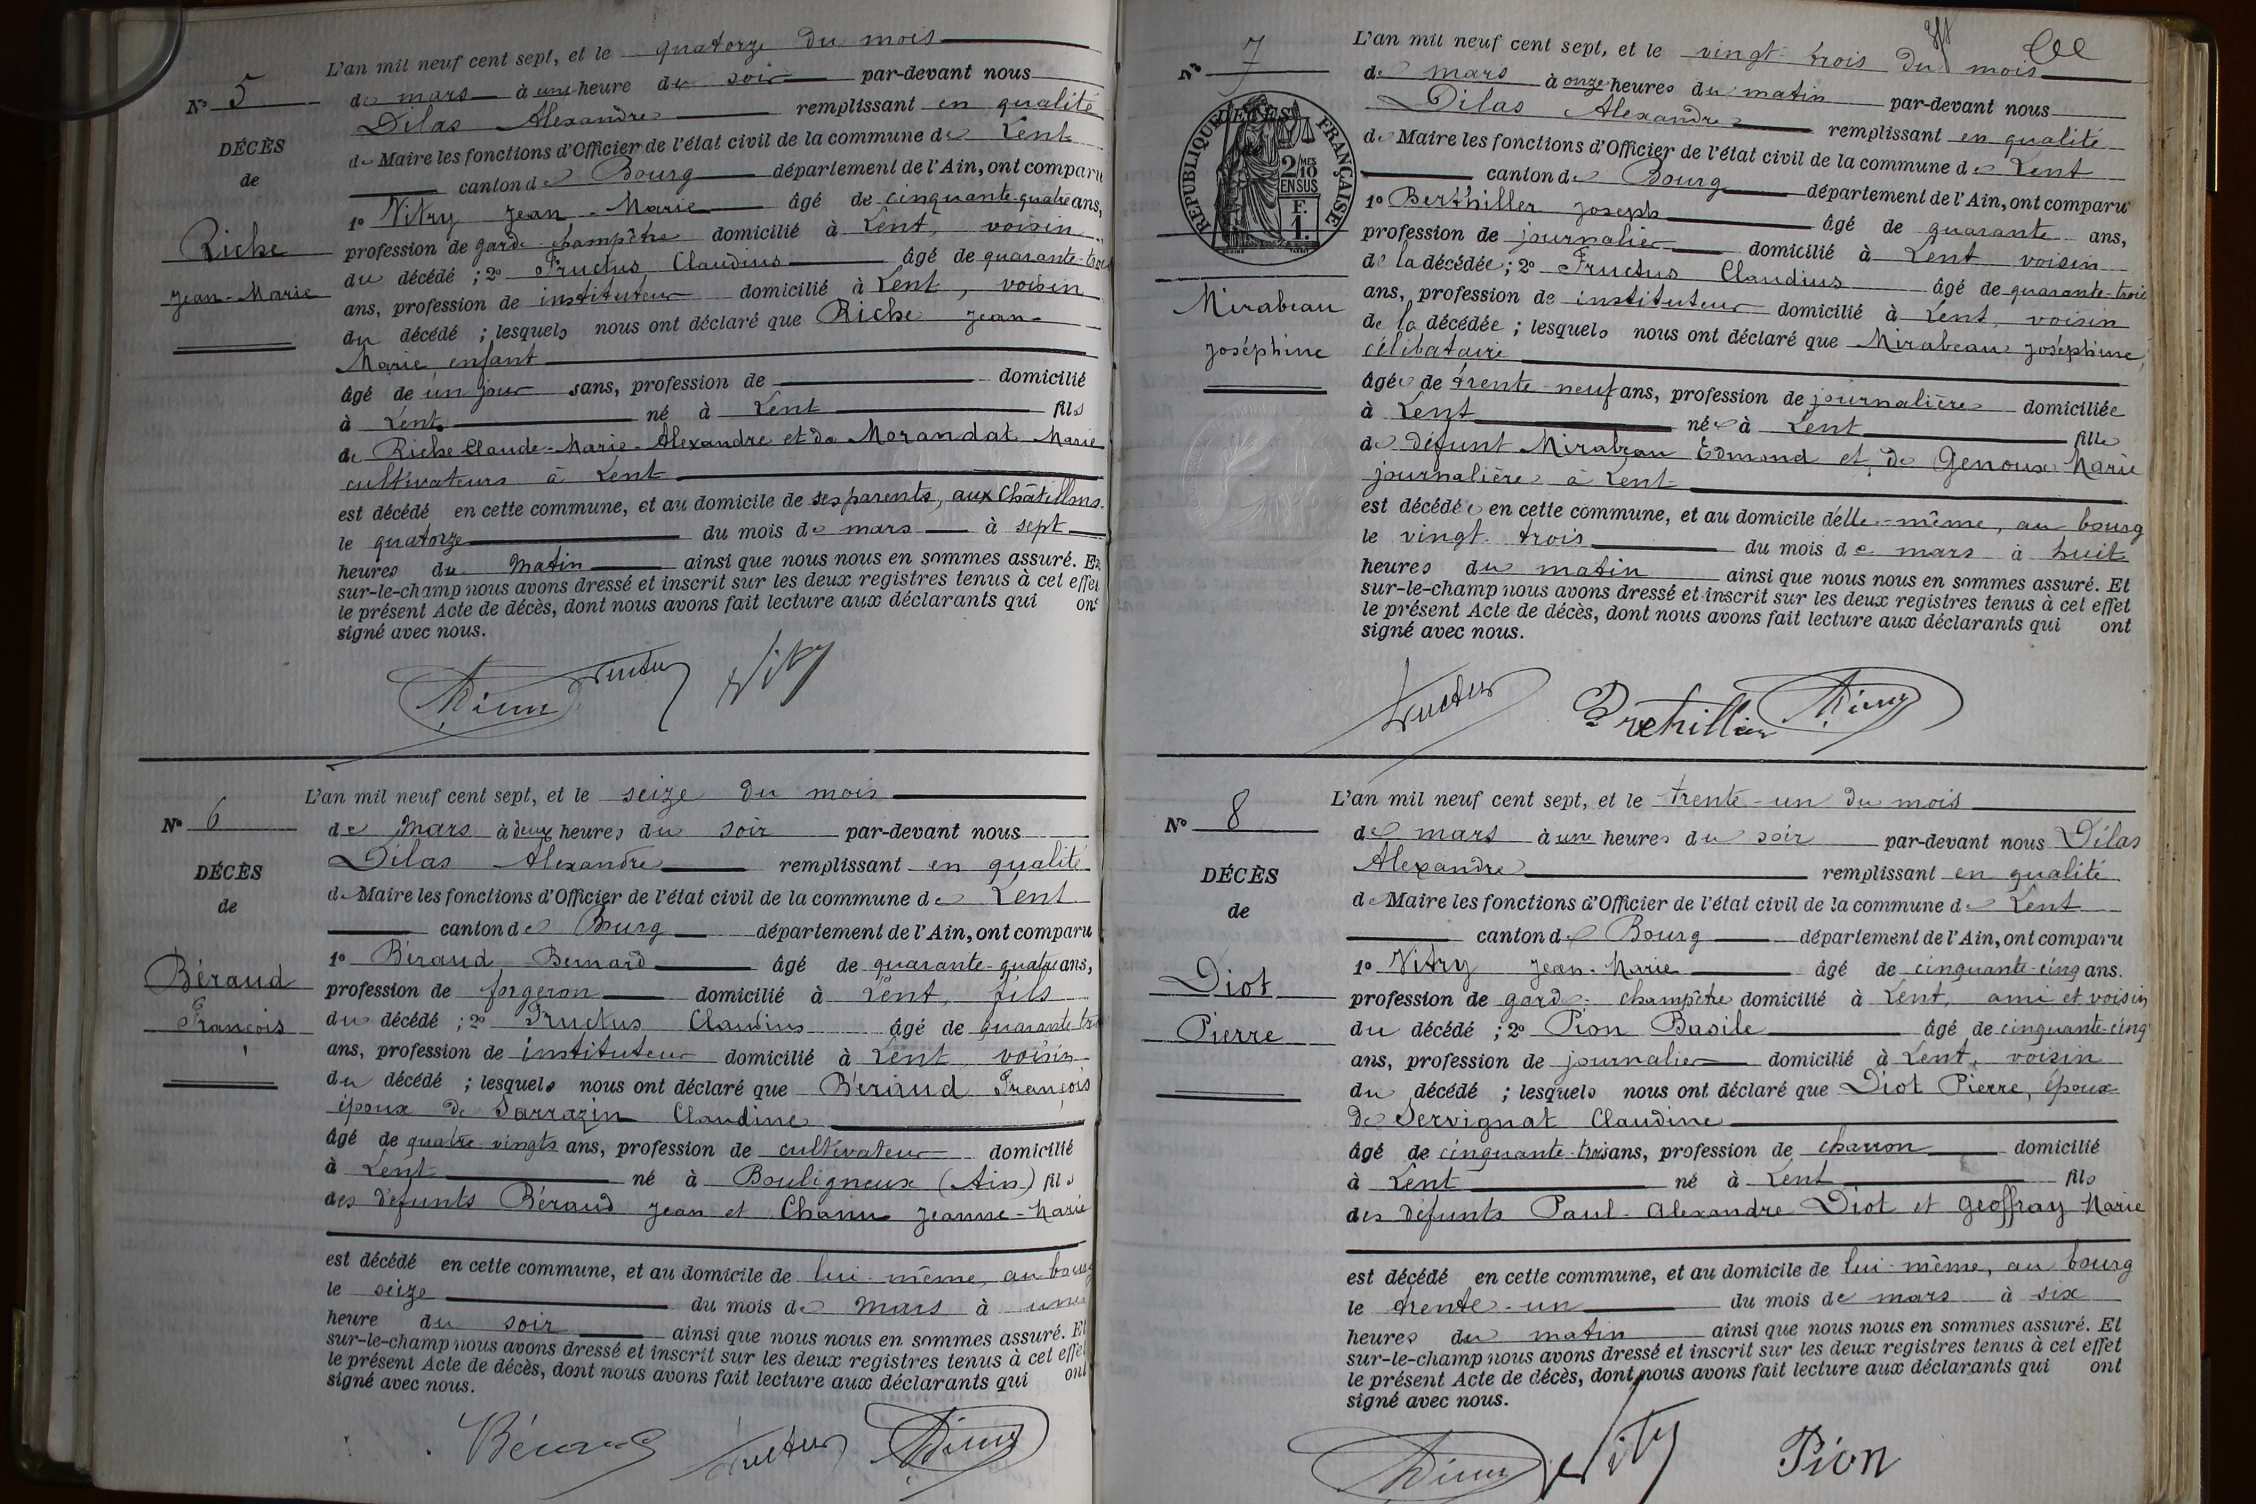 L'an mil neuf cent sept, et le quatorze du mois
N° 5
de mars à une heure du soir par-devant nous
Dilas Alexandre remplissant en qualité
DÉCÈS
de Maire les fonctions d'Officier de l'état civil de la commune de Lent
de
canton de Bourg département de l'Ain, ont comparu
1° Vitry Jean-Marie âgé de cinquante-quatre ans,
Riche
profession de garde champêtre domicilié à Lent, voisin
du décédé ; 2° Fructus Claudius âgé de quarante-trois
Jean-Marie
ans, profession de instituteur domicilié à Lent, voisin
du décédé ; lesquels nous ont déclaré que Riche Jean-
Marie, enfant
âgé de un jour sans, profession de domicilié
à Lent né à Lent fils
de Riche Claude-Marie-Alexandre et de Morandat Marie
cultivateurs à Lent
est décédé en cette commune, et au domicile de ses parents, aux Châtillons
le quatorze du mois de mars à sept
heures du matin ainsi que nous nous en sommes assuré. Et
sur-le-champ nous avons dressé et inscrit sur les deux registres tenus à cet effet
le présent Acte de décès, dont nous avons fait lecture aux déclarants qui ont
signé avec nous.
Fructus Vitry
L'an mil neuf cent sept, et le seize du mois
N° 6
de mars à deux heures du soir par-devant nous
Dilas Alexandre remplissant en qualité
DÉCÈS
de Maire les fonctions d'Officier de l'état civil de la commune de Lent
de
canton de Bourg département de l'Ain, ont comparu
1° Béraud Bernard âgé de quarante-quatre ans,
Béraud
profession de forgeron domicilié à Lent, fils
François
du décédé ; 2° Fructus Claudius âgé de quarante-tro
ans, profession de instituteur domicilié à Lent voisin
du décédé ; lesquels nous ont déclaré que Béraud François
époux de Sarrazin Claudine
âgé de quatre-vingts ans, profession de cultivateur domicilié
à Lent né à Bouligneux (Ain) fils
des défunts Béraud Jean et Chanu Jeanne-Marie
est décédé en cette commune, et au domicile de lui-même, au bourg
le seize du mois de mars à une
heure du soir ainsi que nous nous en sommes assuré. Et
sur-le-champ nous avons dressé et inscrit sur les deux registres tenus à cet effet
le présent Acte de décès, dont nous avons fait lecture aux déclarants qui ont
signé avec nous.
Béraud Fructus
L'an mil neuf cent sept, et le vingt-trois du mois
N° 7
de mars à onze heures du matin par-devant nous
Dilas Alexandre remplissant en qualité
de Maire les fonctions d'Officier de l'état civil de la commune de Lent
RÉPUBLIQUE FRANÇAISE
2/10 MES
EN SUS
F.
1.
canton de Bourg département de l'Ain, ont comparu
1° Berthiller Joseph âgé de quarante ans,
profession de journalier domicilié à Lent voisin
de la décédée ; 2° Fructus Claudius âgé de quarante-trois
Mirabeau
ans, profession de instituteur domicilié à Lent, voisin
de la décédée ; lesquels nous ont déclaré que Mirabeau Joséphine,
Joséphine
célibataire
âgée de trente-neuf ans, profession de journalière domiciliée
à Lent née à Lent fille
de défunt Mirabeau Edmond et de Genoux Marie
journalière à Lent
est décédée en cette commune, et au domicile d'elle-même, au bourg
le vingt-trois du mois de mars à huit
heures du matin ainsi que nous nous en sommes assuré. Et
sur-le-champ nous avons dressé et inscrit sur les deux registres tenus à cet effet
le présent Acte de décès, dont nous avons fait lecture aux déclarants qui ont
signé avec nous.
Fructus
L'an mil neuf cent sept, et le trente-un du mois
N° 8
de mars à une heures du soir par-devant nous Dilas
Alexandre remplissant en qualité
DÉCÈS
de Maire les fonctions d'Officier de l'état civil de la commune de Lent
de
canton de Bourg département de l'Ain, ont comparu
1° Vitry Jean-Marie âgé de cinquante-cinq ans.
Diot
profession de garde-champêtre domicilié à Lent, ami et voisin
Pierre
du décédé ; 2° Pion Basile âgé de cinquante-cinq
ans, profession de journalier domicilié à Lent, voisin
du décédé ; lesquels nous ont déclaré que Diot Pierre, époux
de Servignat Claudine
âgé de cinquante-trois ans, profession de charron domicilié
à Lent né à Lent fils
des défunts Paul-Alexandre Diot et Geoffray Marie
est décédé en cette commune, et au domicile de lui-même, au bourg
le trente-un du mois de mars à six
heures du matin ainsi que nous nous en sommes assuré. Et
sur-le-champ nous avons dressé et inscrit sur les deux registres tenus à cet effet
le présent Acte de décès, dont nous avons fait lecture aux déclarants qui ont
signé avec nous.
Vitry Pion